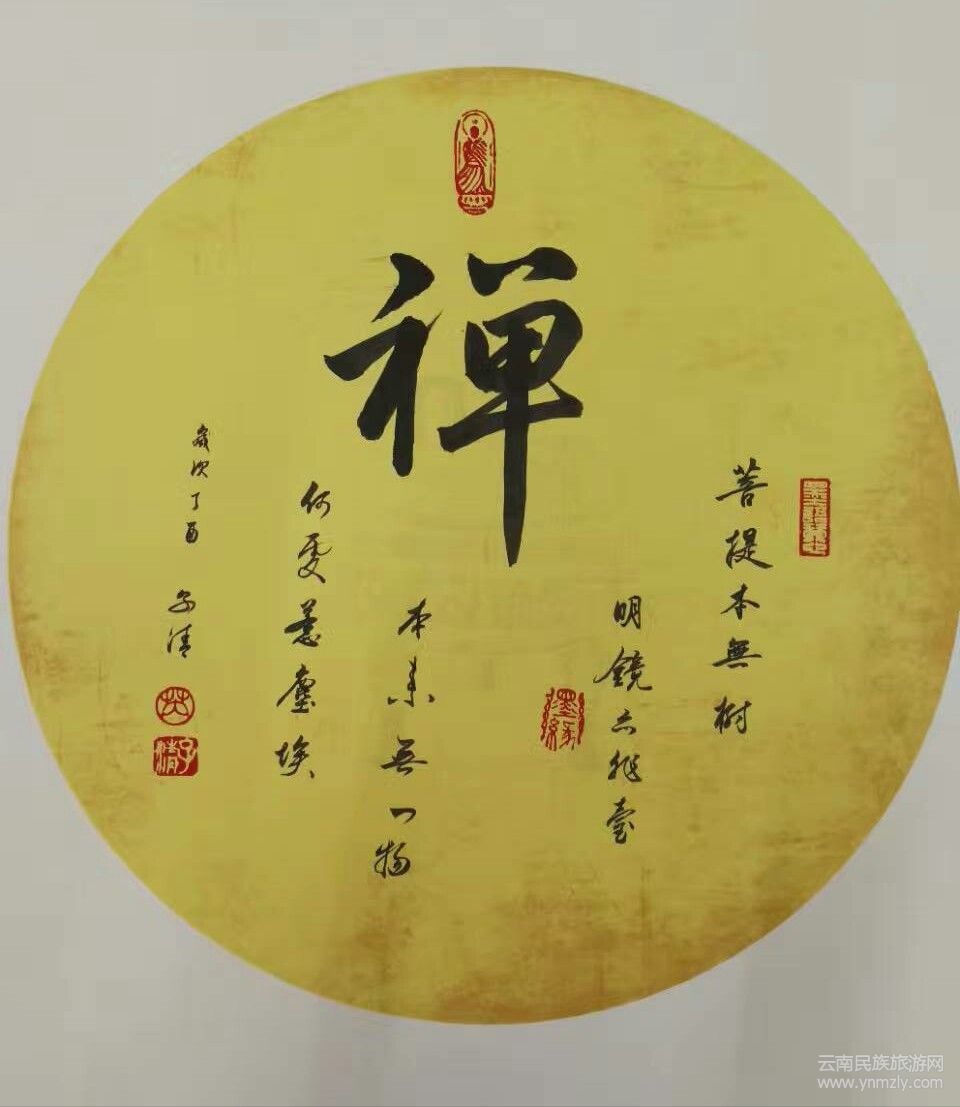 禅
菩提本無樹
明鏡亦非臺
本来無一物
何處惹塵埃
歲次丁酉 子清
墨缘
云南民族旅游网
www.ynmzly.com